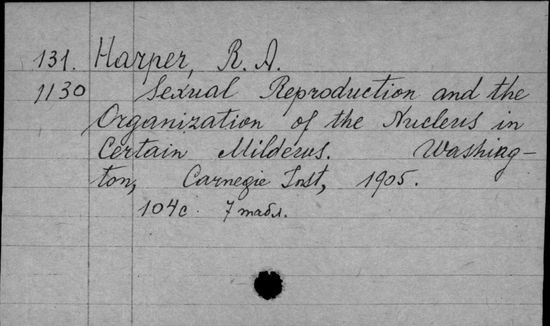 131. Harper, R. A.
1130 Sexual Reproduction and the
Organization of the Nucleus in
Certain Milderus. Washing-
ton, Carnegie Inst, 1905.
104c. 7 табл.